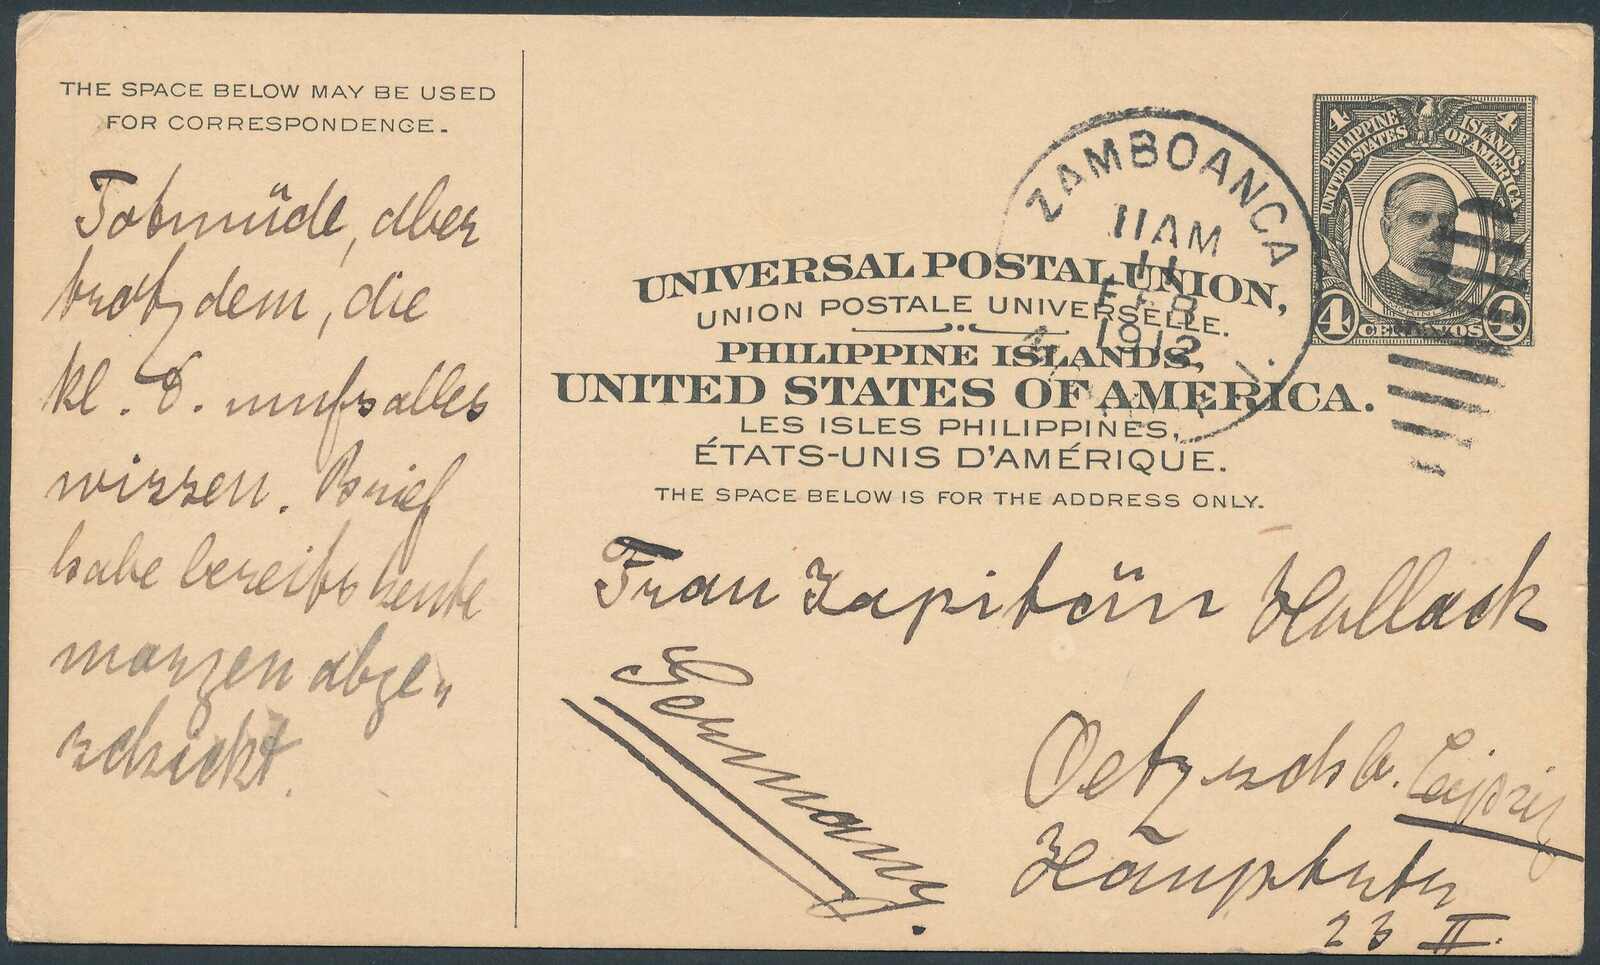 THE SPACE BELOW MAY BE USED
FOR CORRESPONDENCE.
Totmüde, aber
trotzdem, die
kl. D. mufs alles
wissen. Brief
habe bereits heute
morgen abge„
schickt.
ZAMBOANGA
11 AM
11
FEB
1912
P. I.
4 4
PHILIPPINE ISLANDS
UNITED STATES OF AMERICA
4 CENTAVOS 4
UNIVERSAL POSTAL UNION,
UNION POSTALE UNIVERSELLE.
PHILIPPINE ISLANDS,
UNITED STATES OF AMERICA.
LES ISLES PHILIPPINES,
ÉTATS-UNIS D'AMÉRIQUE.
THE SPACE BELOW IS FOR THE ADDRESS ONLY.
Frau Kapitän
Germany.
Oetzsch b. Leipzig
23 II.